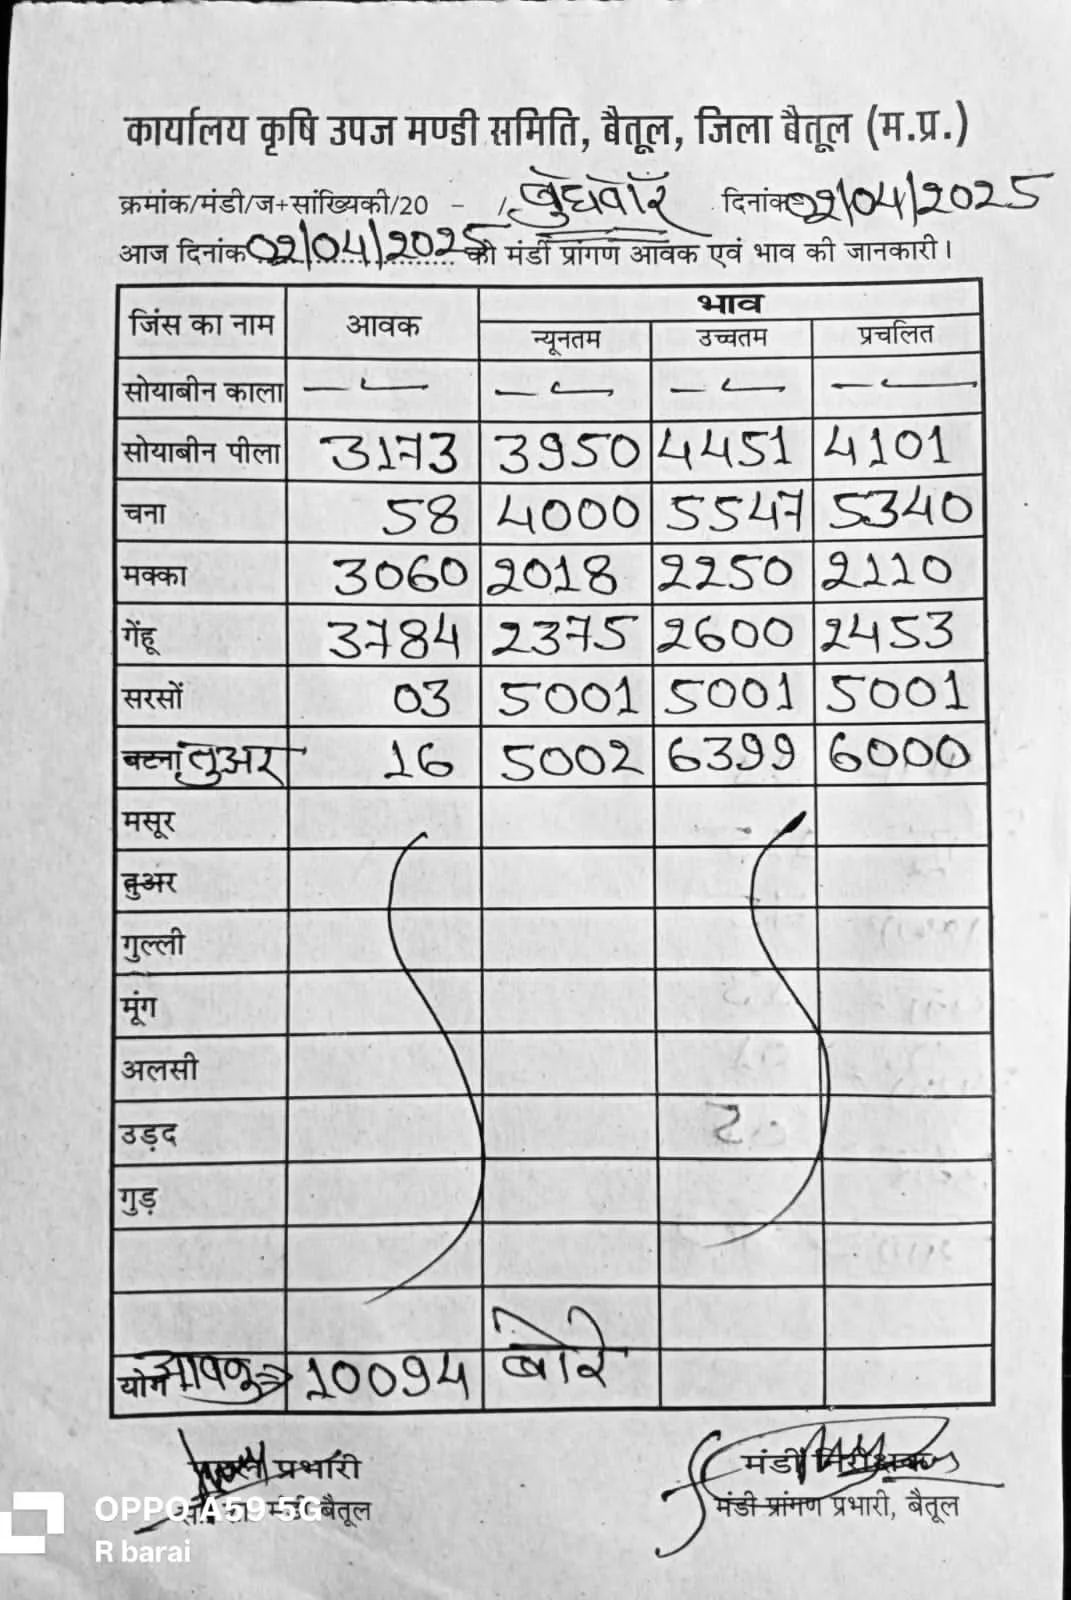 कार्यालय कृषि उपज मण्डी समिति, बैतूल, जिला बैतूल (म.प्र.)
क्रमांक/मंडी/ज+सांख्यिकी/20 - /, बुधवार दिनांक 02/04/2025
आज दिनांक 02/04/2025 को मंडी प्रांगण आवक एवं भाव की जानकारी।
जिंस का नाम आवक भाव
न्यूनतम उच्चतम प्रचलित
सोयाबीन काला — — — —
सोयाबीन पीला 3173 3950 4451 4101
चना 58 4000 5547 5340
मक्का 3060 2018 2250 2110
गेंहू 3784 2375 2600 2453
सरसों 03 5001 5001 5001
बटना तुअर 16 5002 6399 6000
मसूर
तुअर
गुल्ली
मूंग
अलसी
उड़द
गुड़
योग आवक 10094 बोरे
प्रभारी मंडी निरीक्षक
मंडी बैतूल मंडी प्रांगण प्रभारी, बैतूल
OPPO A59 5G
R barai